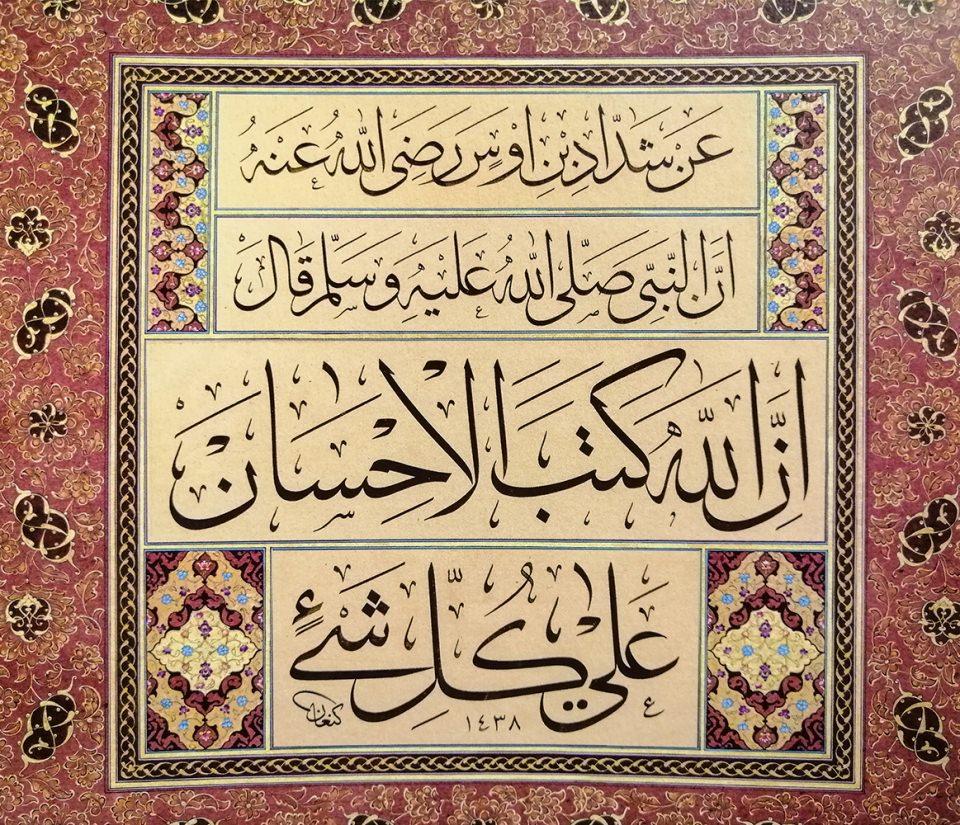 عَنْ شَدَّادِ بْنِ اَوْسٍ رَضِيَ اللّٰهُ عَنْهُ
اَنَّ النَّبِيَّ صَلَّى اللّٰهُ عَلَيْهِ وَسَلَّمَ قَالَ
اِنَّ اللّٰهَ كَتَبَ الْاِحْسَانَ
عَلٰى كُلِّ شَيْءٍ
كنعان
١٤٣٨